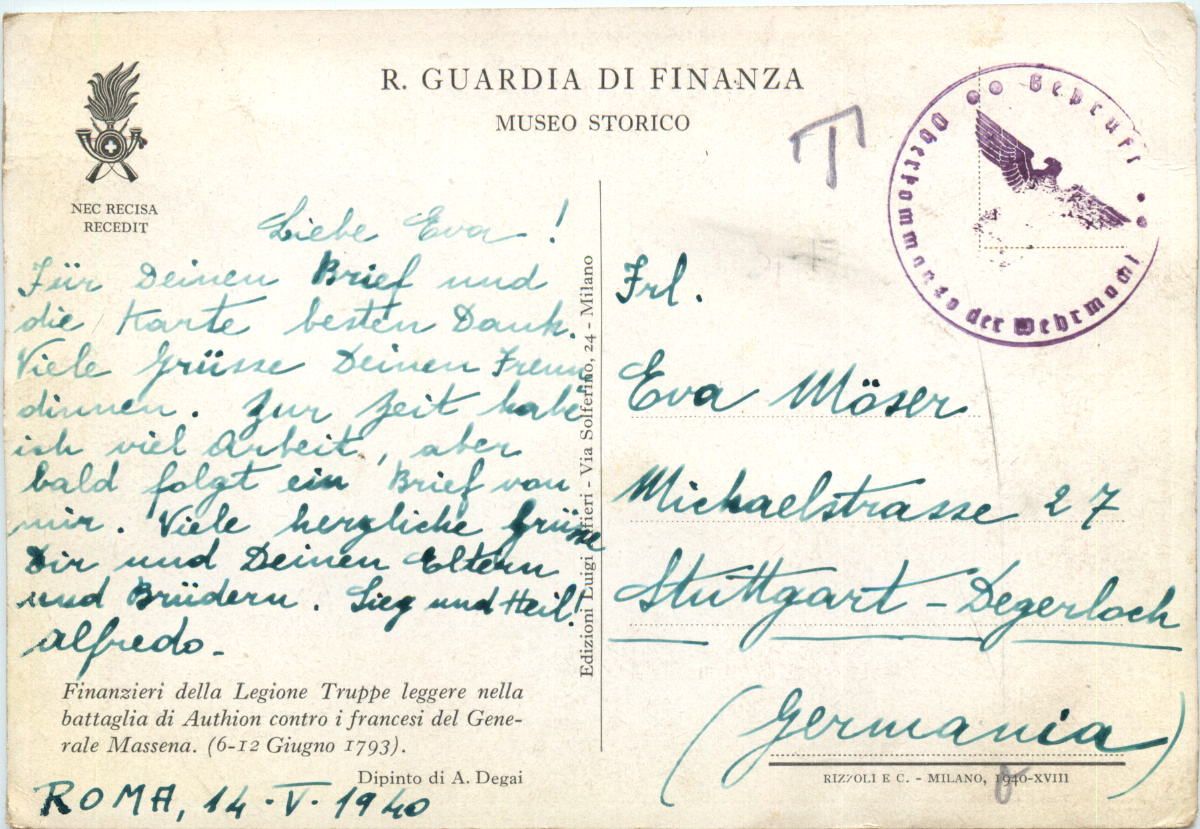 R. GUARDIA DI FINANZA
MUSEO STORICO
NEC RECISA
RECEDIT
T
Geprüft
Oberkommando der Wehrmacht
Liebe Eva!
Für Deinen Brief und
die Karte besten Dank.
Viele Grüsse Deinen Freun
dinnen. Zur Zeit habe
ich viel Arbeit, aber
bald folgt ein Brief von
mir. Viele herzliche Grüsse
Dir und Deinen Eltern
und Brüdern. Sieg und Heil!
Alfredo.
Finanzieri della Legione Truppe leggere nella
battaglia di Authion contro i francesi del Gene-
rale Massena. (6-12 Giugno 1793).
Dipinto di A. Degai
ROMA, 14-V-1940
Edizioni Luigi Alfieri - Via Solferino, 24 - Milano
Frl.
Eva Möser
Michaelstrasse 27
Stuttgart-Degerloch
(Germania)
RIZZOLI E C. - MILANO, 1940-XVIII